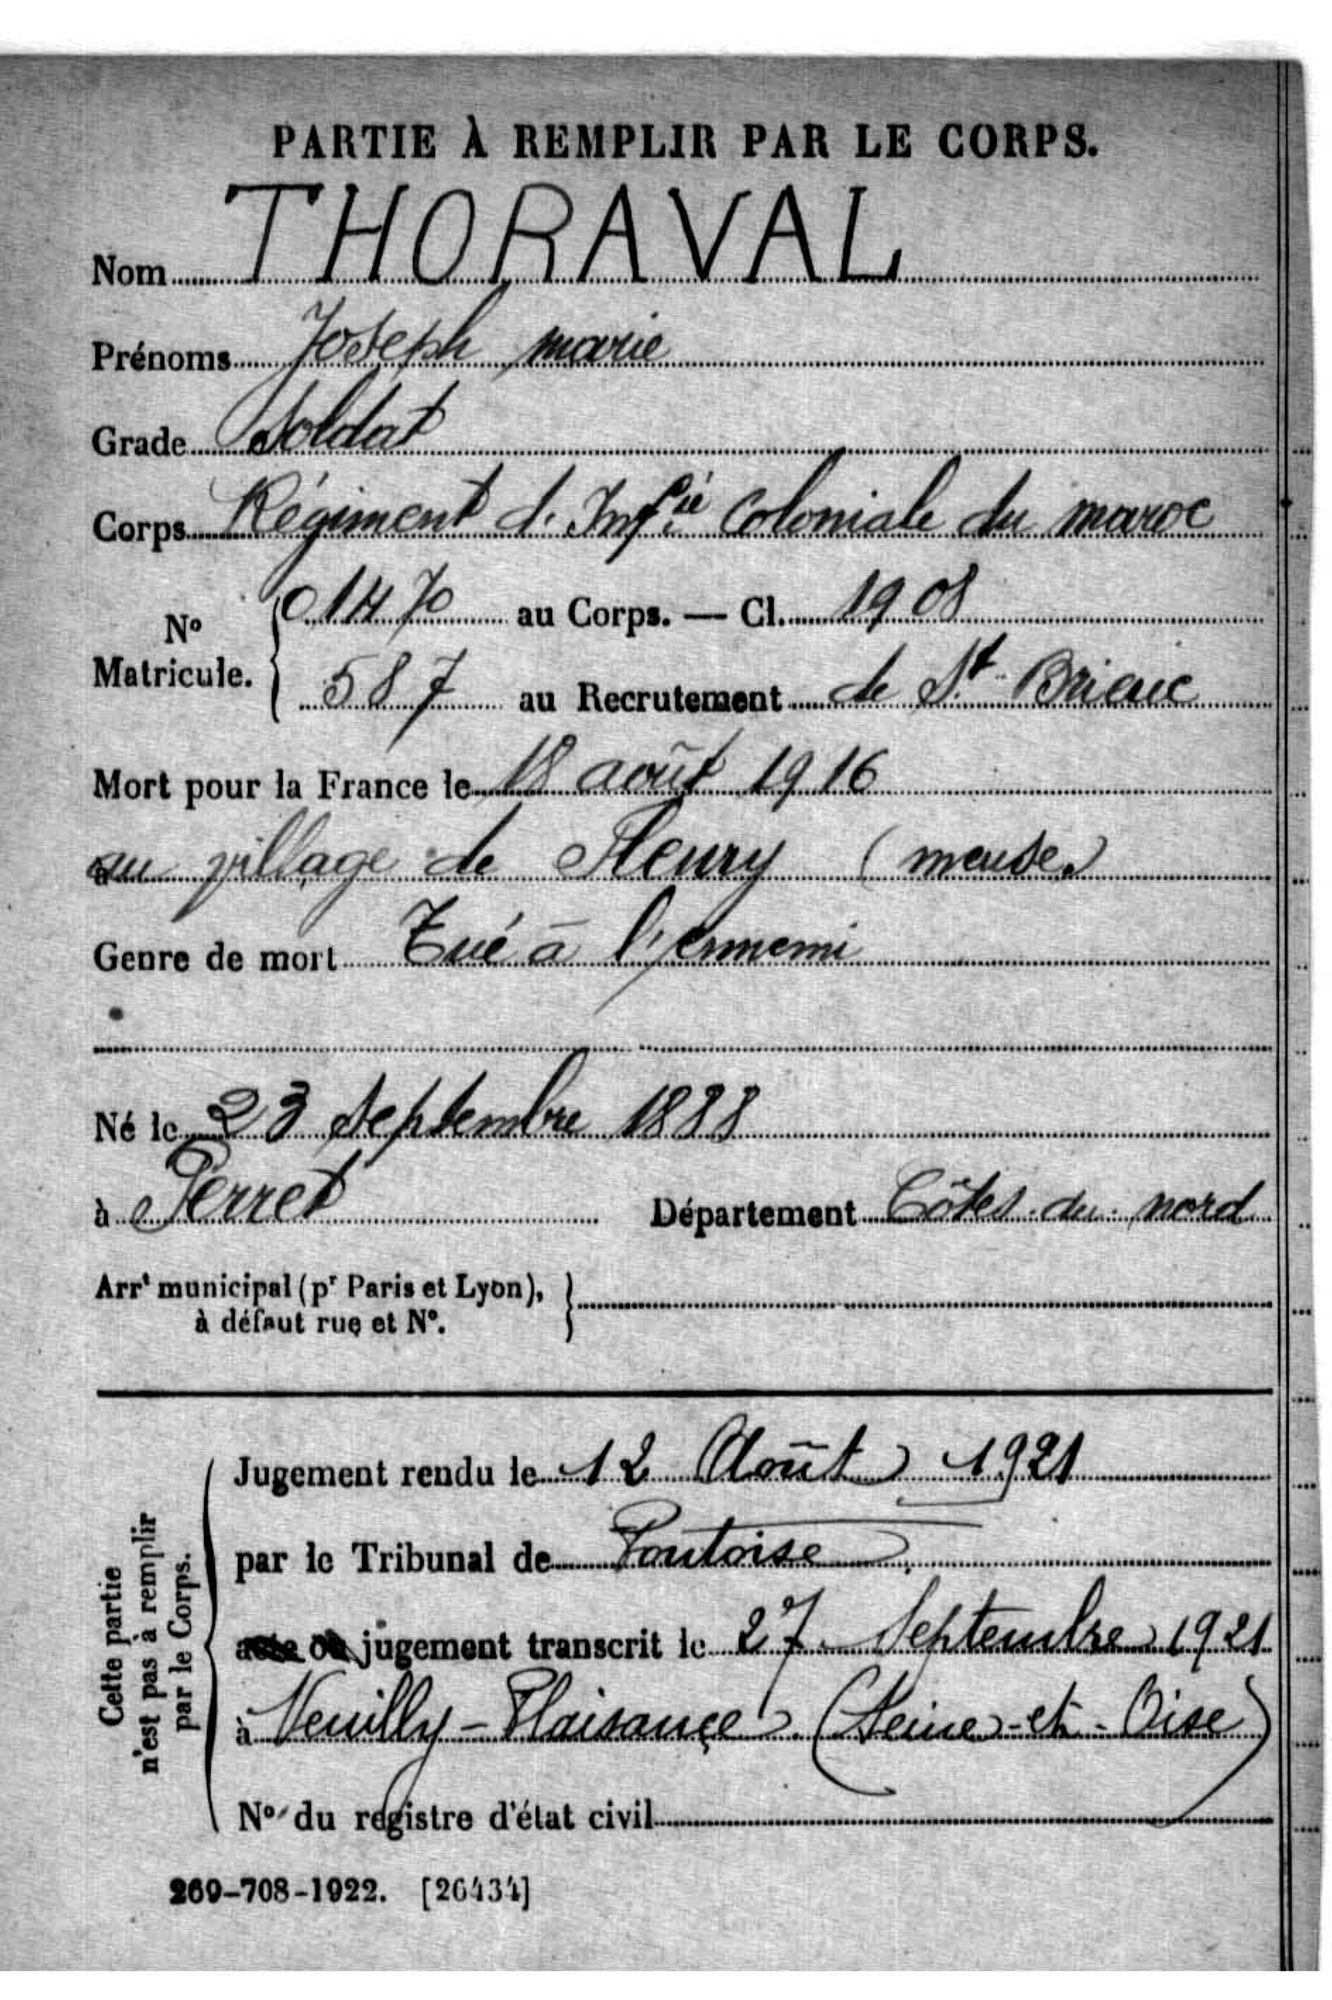 PARTIE À REMPLIR PAR LE CORPS.
Nom THORAVAL
Prénoms Joseph marie
Grade Soldat
Corps Régiment d. Infie Coloniale du maroc
No Matricule. { 01470 au Corps. — Cl. 1908
587 au Recrutement de St. Brieuc
Mort pour la France le 18 août 1916
au village de Fleury (meuse)
Genre de mort Tué à l'ennemi
Né le 23 septembre 1888
à Perret Département Côtes du nord
Arrt municipal (pr Paris et Lyon), à défaut rue et No. }
Cette partie n'est pas à remplir par le Corps.
Jugement rendu le 12 Août 1921
par le Tribunal de Pontoise
jugement transcrit le 27 Septembre 1921
à Neuilly-Plaisance (Seine-et-Oise)
No du registre d'état civil
269-708-1922. [26434]